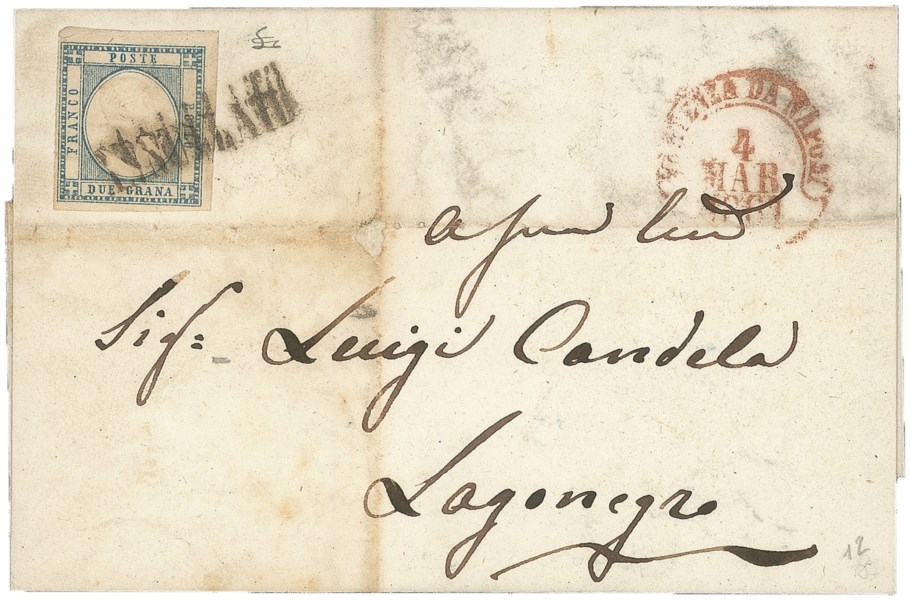 POSTE
FRANCO
BOLLO
DUE GRANA
ANNULLATO
PARTENZA DA NAPOLI
4
MAR
Sigr:
Luigi Candela
Lagonegro
12